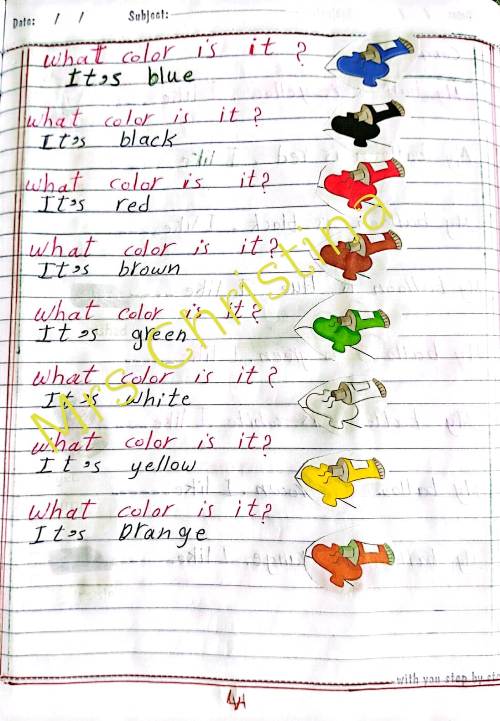 Date: / / Subject:
What color is it ?
It's blue
What color is it?
It's black
What color is it?
It's red
What color is it?
It's brown
What color is it?
It's green
What color is it?
It's white
What color is it?
It's yellow
What color is it?
It's Orange
Mrs Christina
with you step by ste